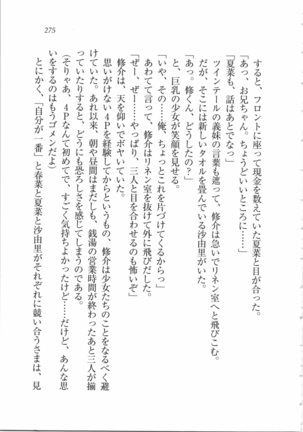 275
すると、フロントに座って現金を数えていた夏菜と目が合った。
「あっ、お兄ちゃん。ちょうどいいところに……」
「夏菜も、話はあとでなっ」
ツインテールの義妹の言葉も遮って、修介は急いでリネン室へと飛びこむ。
だが、そこには新しいタオルを畳んでいる沙由里がいた。
「あっ。修くん、どうしたの？」
と、巨乳の少女が笑顔を見せる。
「いや、その……俺、ちょっとこれを片づけてくるからっ」
あわてて言って、修介はリネン室を抜けて外に飛びだした。
「ぜー、ぜー……やっぱり、三人と目を合わせるのも怖いぞ」
修介は、天を仰いでボヤいていた。
思いがけない4Pを経験してからというもの、修介は少女たちのことをなるべく避
けていた。あれ以来、朝や昼間はまだしも、銭湯の営業時間が終わったあと三人が揃
っていたりすると、どうにも恐ろしさを感じてしまうのである。
（そりゃあ、4Pなんて初めてで、すごく気持ちよかったけど……だけど、あんな思
いをするのはもうゴメンだよ）
とにかく、「自分が一番」と春菜と夏菜と沙由里がそれぞれに競い合うさまは、見